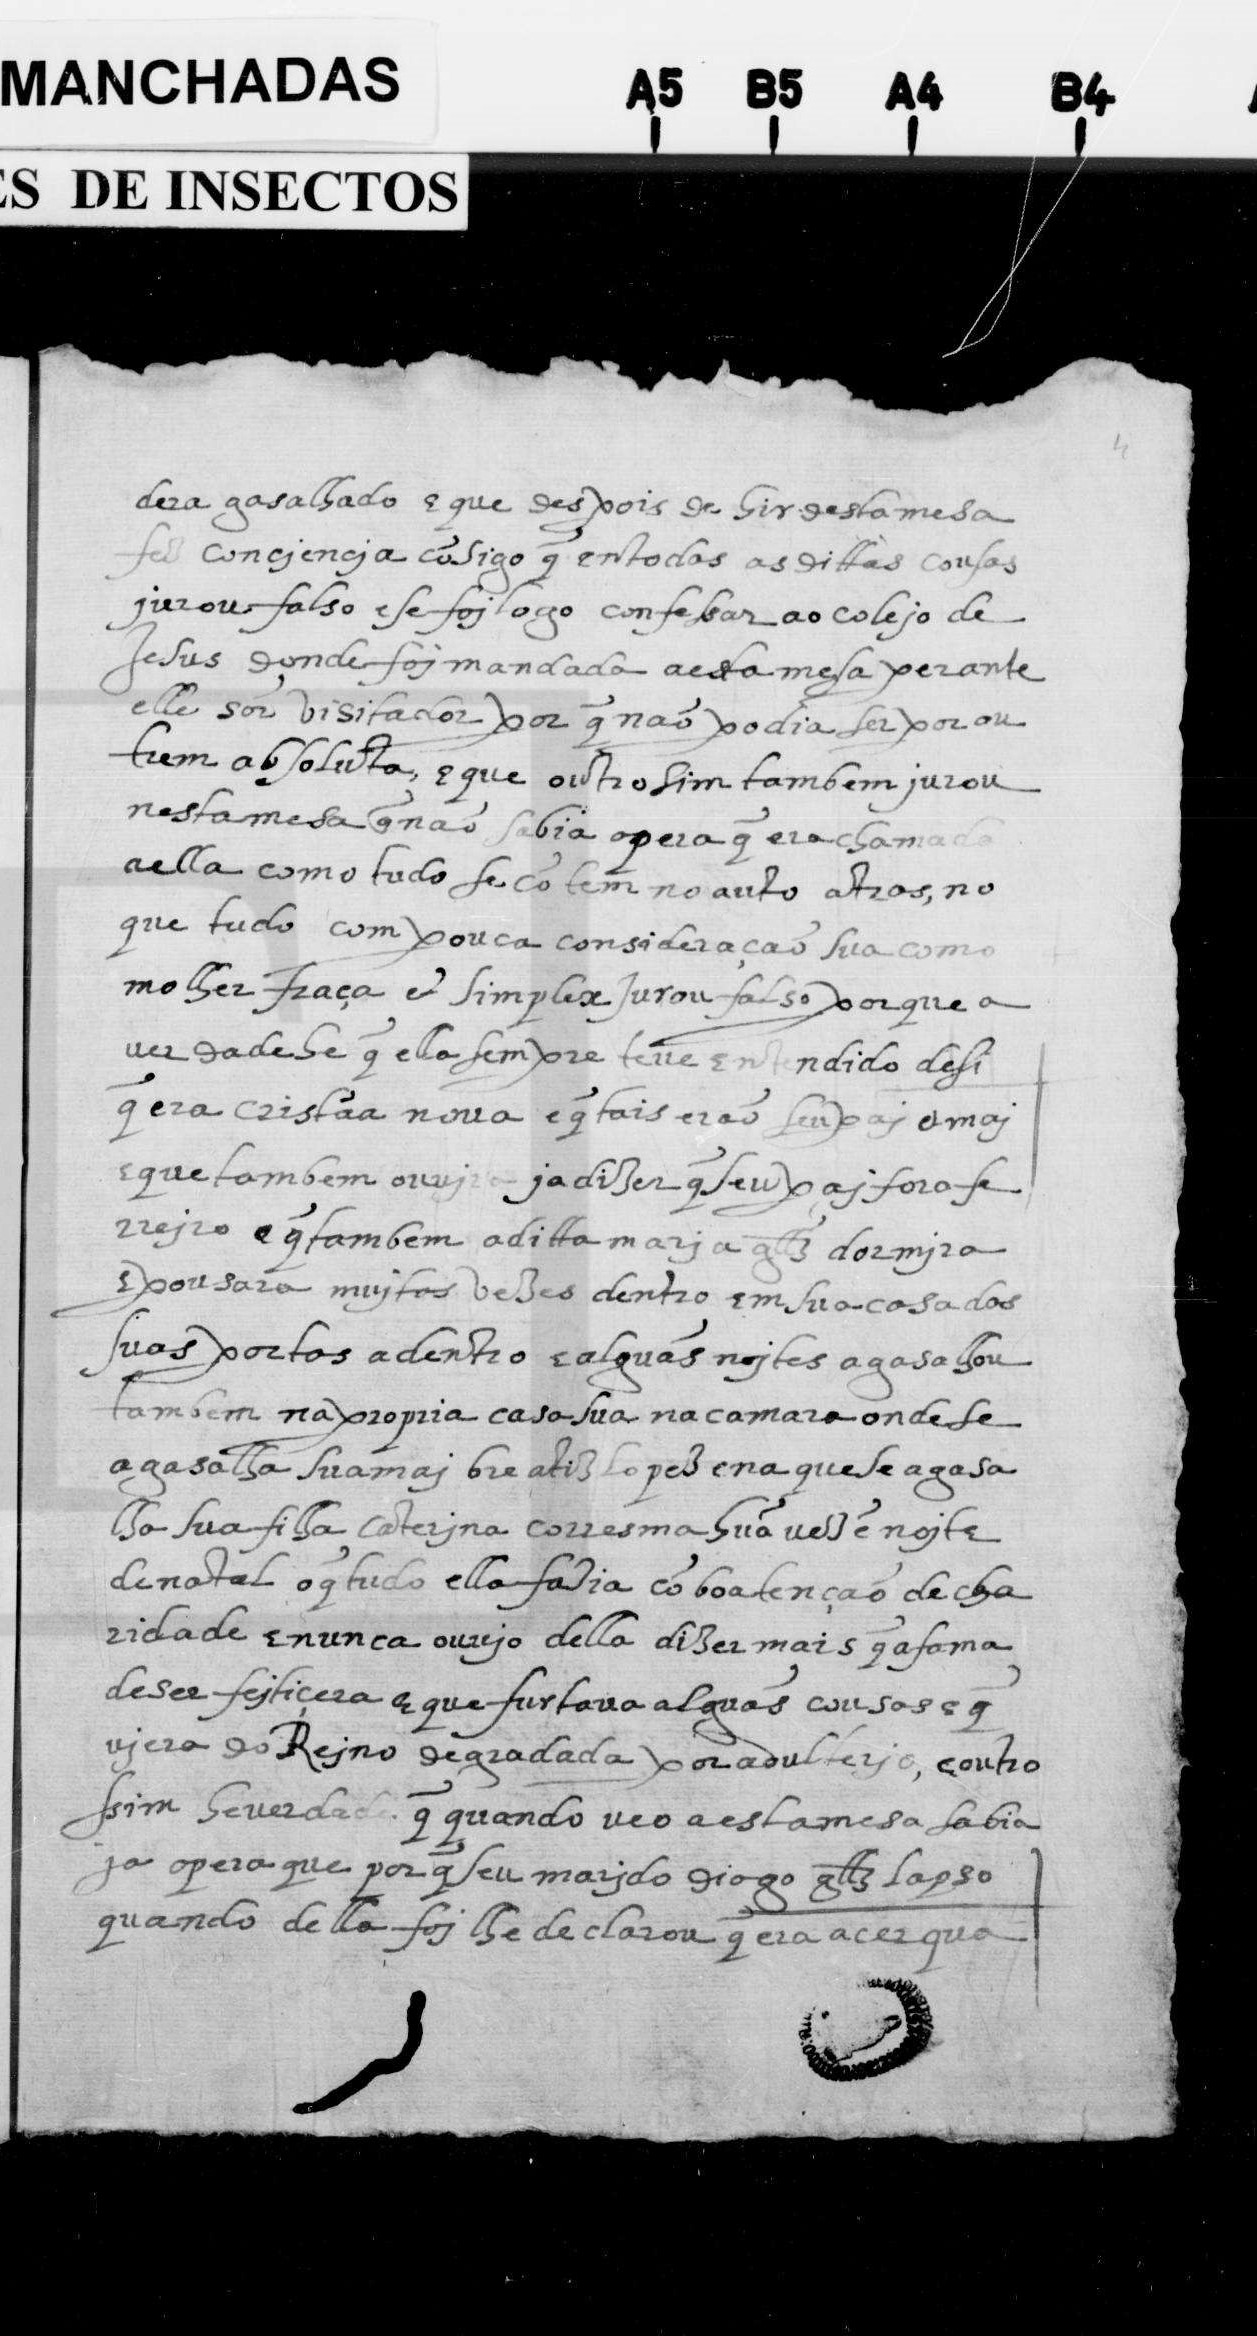 MANCHADAS
A5 B5 A4 B4
ES DE INSECTOS
4
dera gasalhado e que despois de hir desta mesa
fez concjencja cõsigo q̃ en todas as dittas cousas
jurou falso e se foj logo confessar ao colejo de
Jesus donde foj mandada a esta mesa perante
elle sõr visitador por q̃ naõ podia ser por ou
trem absoluta, e que outro sim tambem jurou
nesta mesa q̃ naõ sabia o pera q̃ era chamada
a ella como tudo se cõtem no auto atras, no
que tudo com pouca consideraçaõ sua como
molher fraca e simplex jurou falso porque a
verdade he q̃ ella sempre teue entendido de si
q̃ era cristãa noua e q̃ tais eraõ seu paj e maj
e que tambem ouujra ja dizer q̃ seu paj fora fe
rrejro e q̃ tambem a ditta marja glz̃ dormjra
e pousara mujtas vezes dentro em sua casa das
suas portas a dentro e alguãs nojtes agasalhou
tambem na propria casa sua na camara onde se
agasalha sua maj breatiz lopez e na que se agasa
lha sua filha caterjna corresma huã vez ẽ nojte
de natal o q̃ tudo ella fazia cõ boa tençaõ de cha
ridade e nunca ouujo della dizer mais q̃ a fama
de ser fejticera e que furtaua alguãs cousas e q̃
vjera do Rejno degradada por adulterjo, e outro
ssim he verdade q̃ quando veo a esta mesa sabia
ja o pera que por q̃ seu marjdo diogo glz̃ lapso
quando della foj lhe declarou q̃ era acerqua